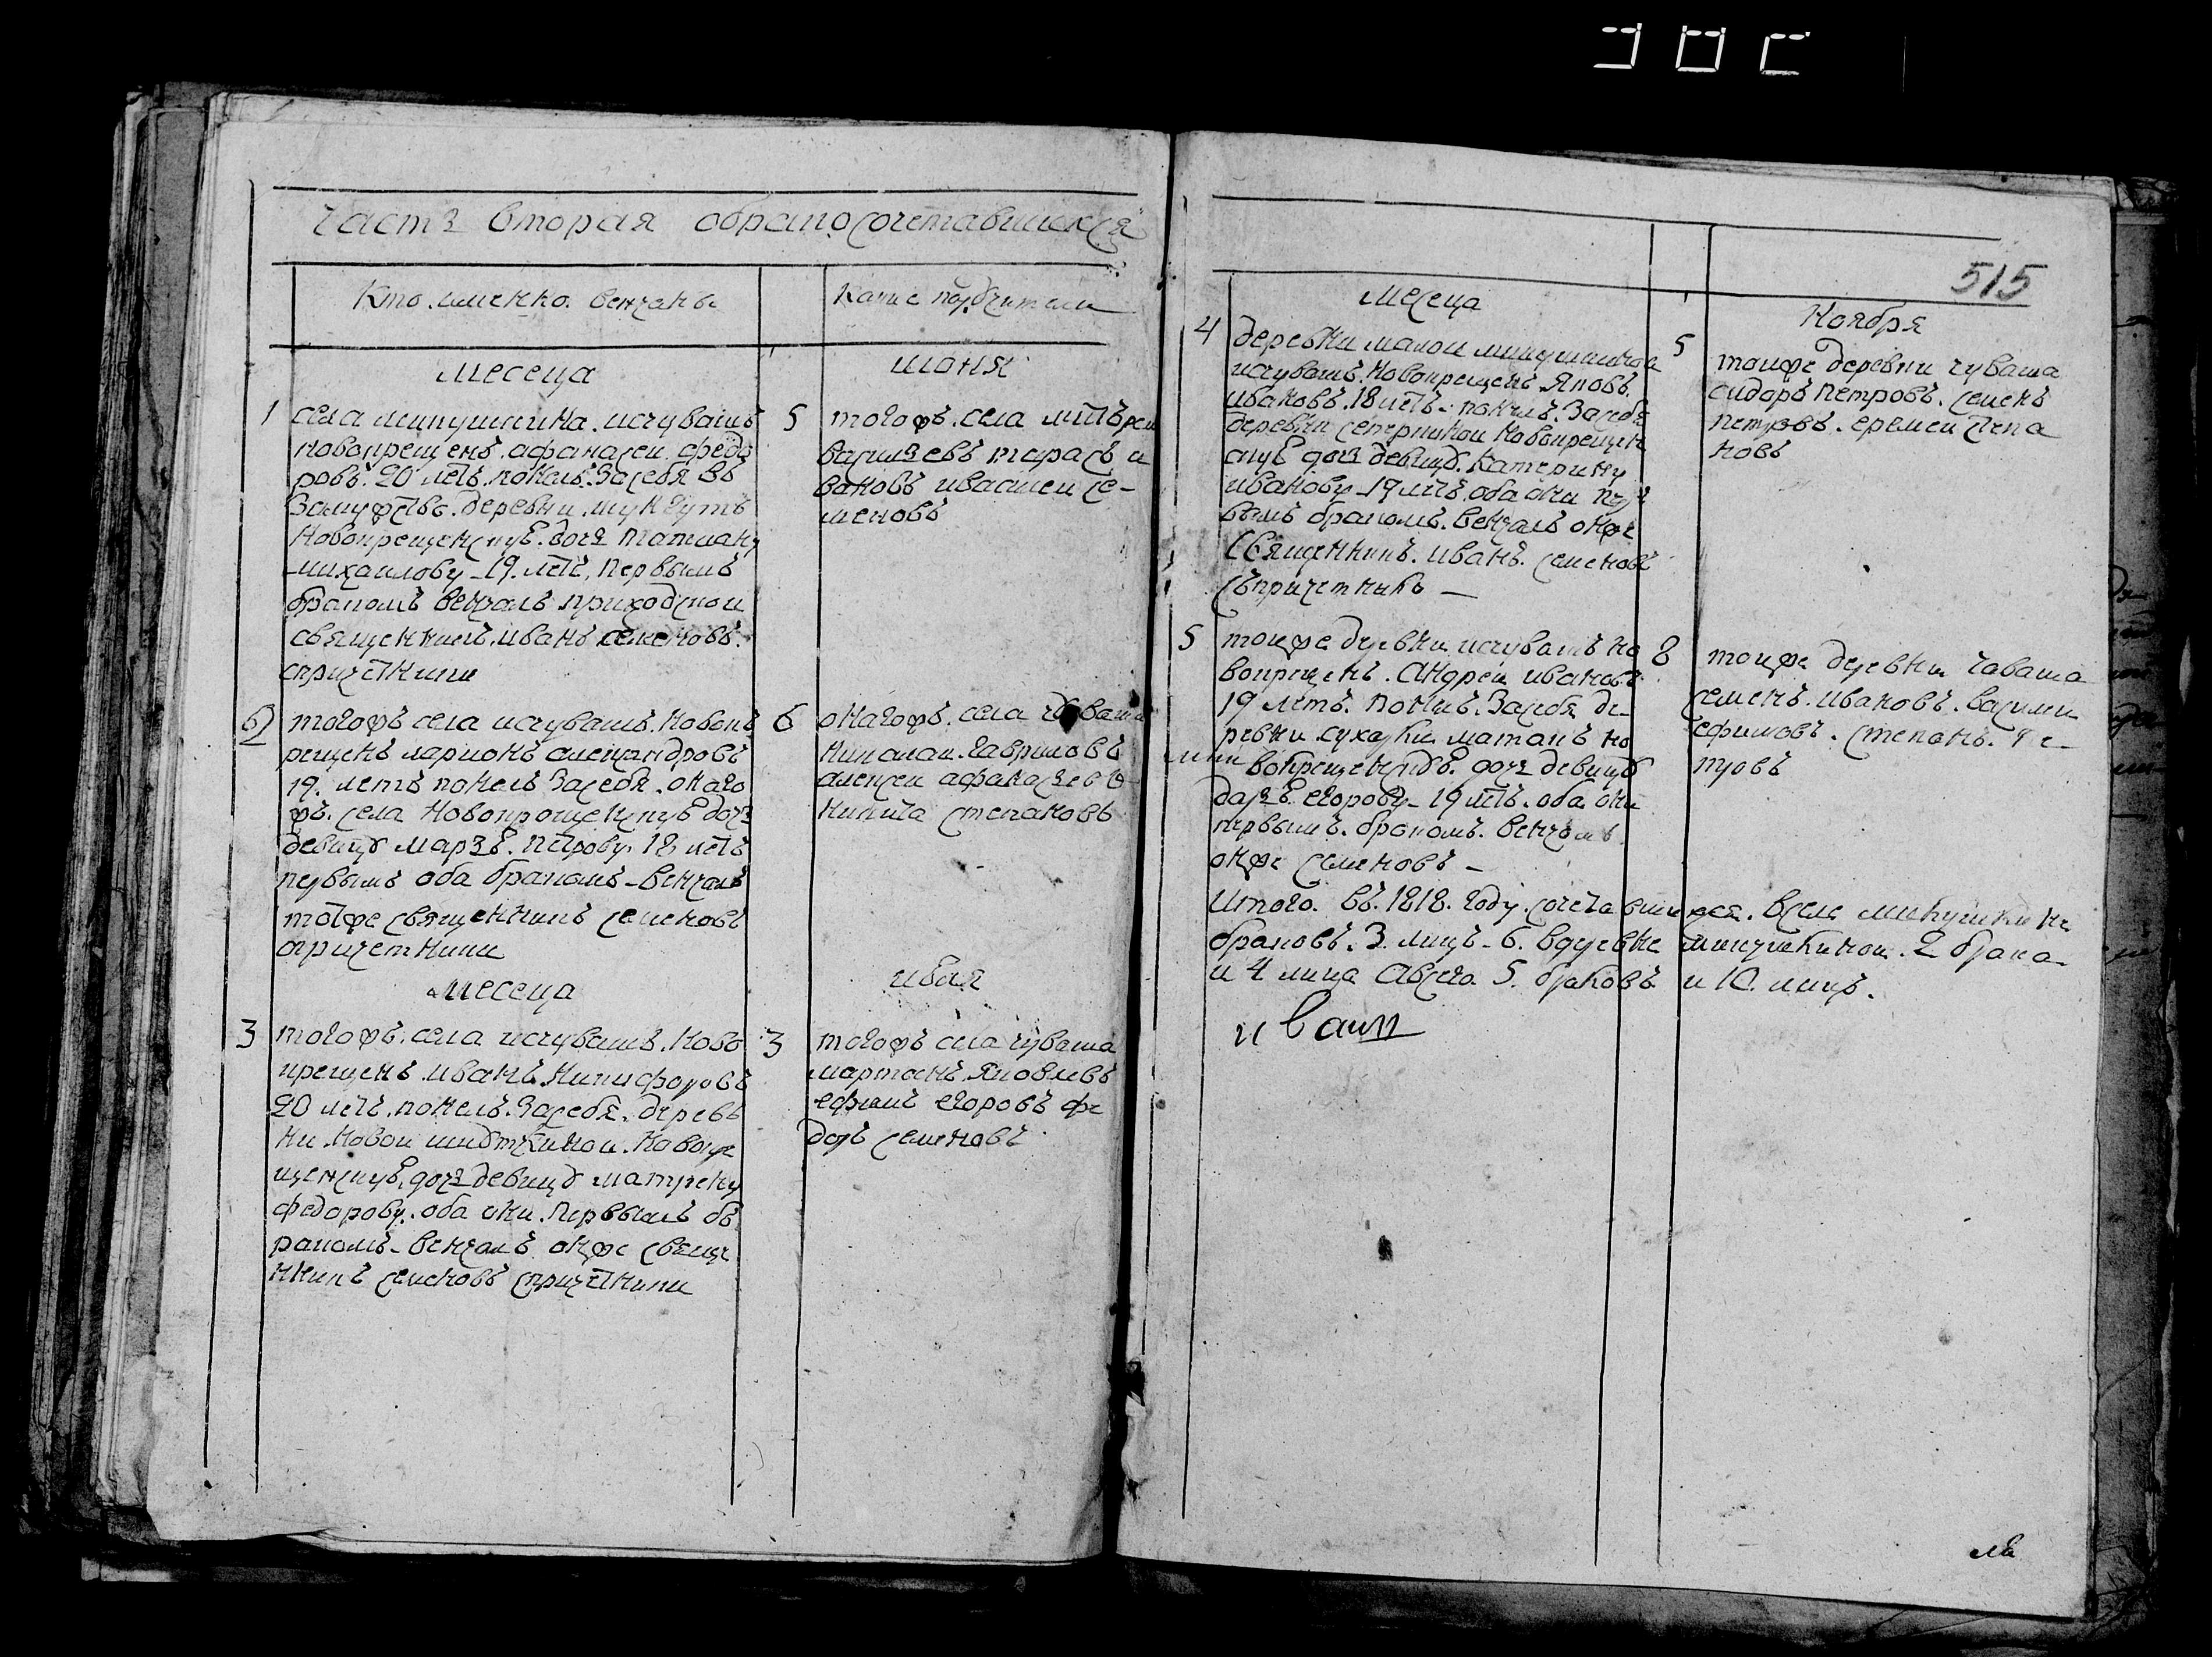 Часть вторая обракосочетавшихся
Кто именно венчаны
Какие поручители
месеца
июня
1 села микушкина исчувашъ
новокрещенъ афанасеи федо
ровъ 20 летъ понелъ засебя въ
замужство деревни
новокрещенскую дочь татиану
михаилову 19 летъ первымъ
бракомъ венчалъ приходскои
священникъ иванъ семеновъ
спричетники
5 тогожъ села
василевъ тарасъ и
вановъ семенъ се-
меновъ
2 тогожъ села исчувашъ новокъ
рещенъ ларионъ александровъ
19 летъ понелъ засебя оного
жъ села новокрощенскую дочь
девицу марью петрову 18 летъ
первымъ оба бракомъ венчалъ
тотже священникъ семеновъ
спричетники
6 оногожъ села чуваши
николаи гавриловъ
алексеи афанасьевъ
никита степановъ
месеца
июля
3 тогожъ села исчувашъ ново
крещенъ иванъ никифоровъ
20 летъ понелъ засебя деревъ
ни новои новокре
щенскую дочь девицу матрену
федорову оба они первымъ бъ
ракомъ венчалъ онже свяще
нникъ семеновъ спричетники
3 тогожъ села чуваша
мартынъ яковлевъ
ефимъ егоровъ фе
доръ семеновъ
515
месеца
ноября
4 деревни малои микушкинои
исчувашъ новокрещенъ яковъ
ивановъ 18 летъ понелъ засебя
деревни новокрещен
скую дочь девицу катерину
иванову 19 летъ оба они пер
вымъ бракомъ венчалъ онже
священникъ иванъ семеновъ
съпричетники
5 тоиже деревни чуваша
сидоръ петровъ семенъ
петровъ еремеи степа
новъ
5 тоиже деревни исчувашъ но
вокрещенъ андреи ивановъ
19 летъ понялъ засебя де
ревни матакъ но
вокрещенскую дочь девицу
дарью егорову 19 летъ оба они
первымъ бракомъ венчалъ
онже семеновъ
8 тоиже деревни чаваша
семенъ ивановъ василеи
ефимовъ степанъ пе-
тровъ
Итого въ 1818 году сочетавшихся вселе микушкине
браковъ 3 лицъ 6 вдеревне микушкинои 2 брака
и 4 лица авсего 5 браковъ и 10 лицъ
иванъ